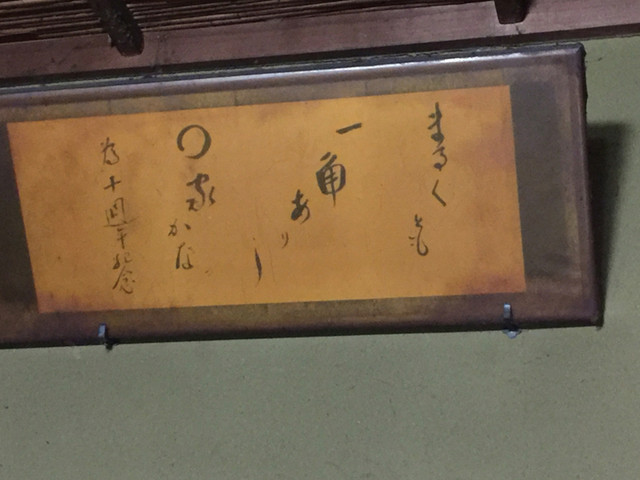 まるくとも
一角あり
し
〇家かな
為十周年記念